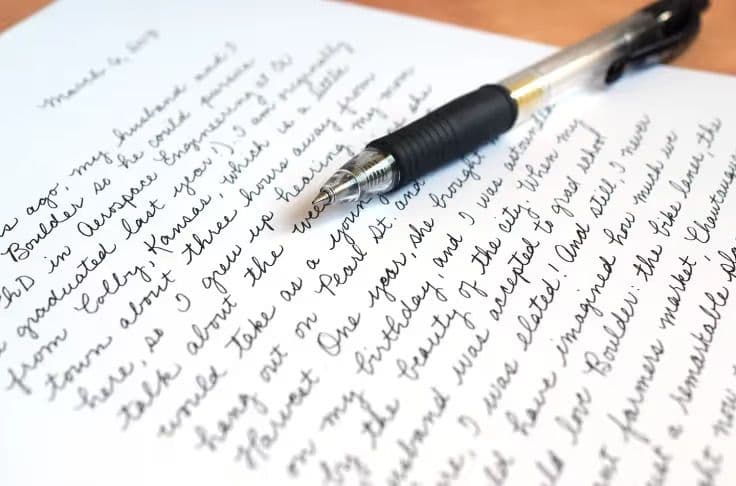 ago, my husband and I
Boulder so he could pursue
PhD in Aerospace Engineering at
graduated last year!). I am originally
from Colby, Kansas, which is a little
town about three hours away from
here, so I grew up hearing my mom
talk about the
would take as a
hang out on Pearl St. and
Harvest. One year, she brought
on my birthday, and I was astounded
by the beauty of the city. When my
husband was accepted to grad school
I was elated! And still, I never
have imagined how much we
love Boulder: the bike lanes, the
farmers market, Chautauqua
a remarkable
now